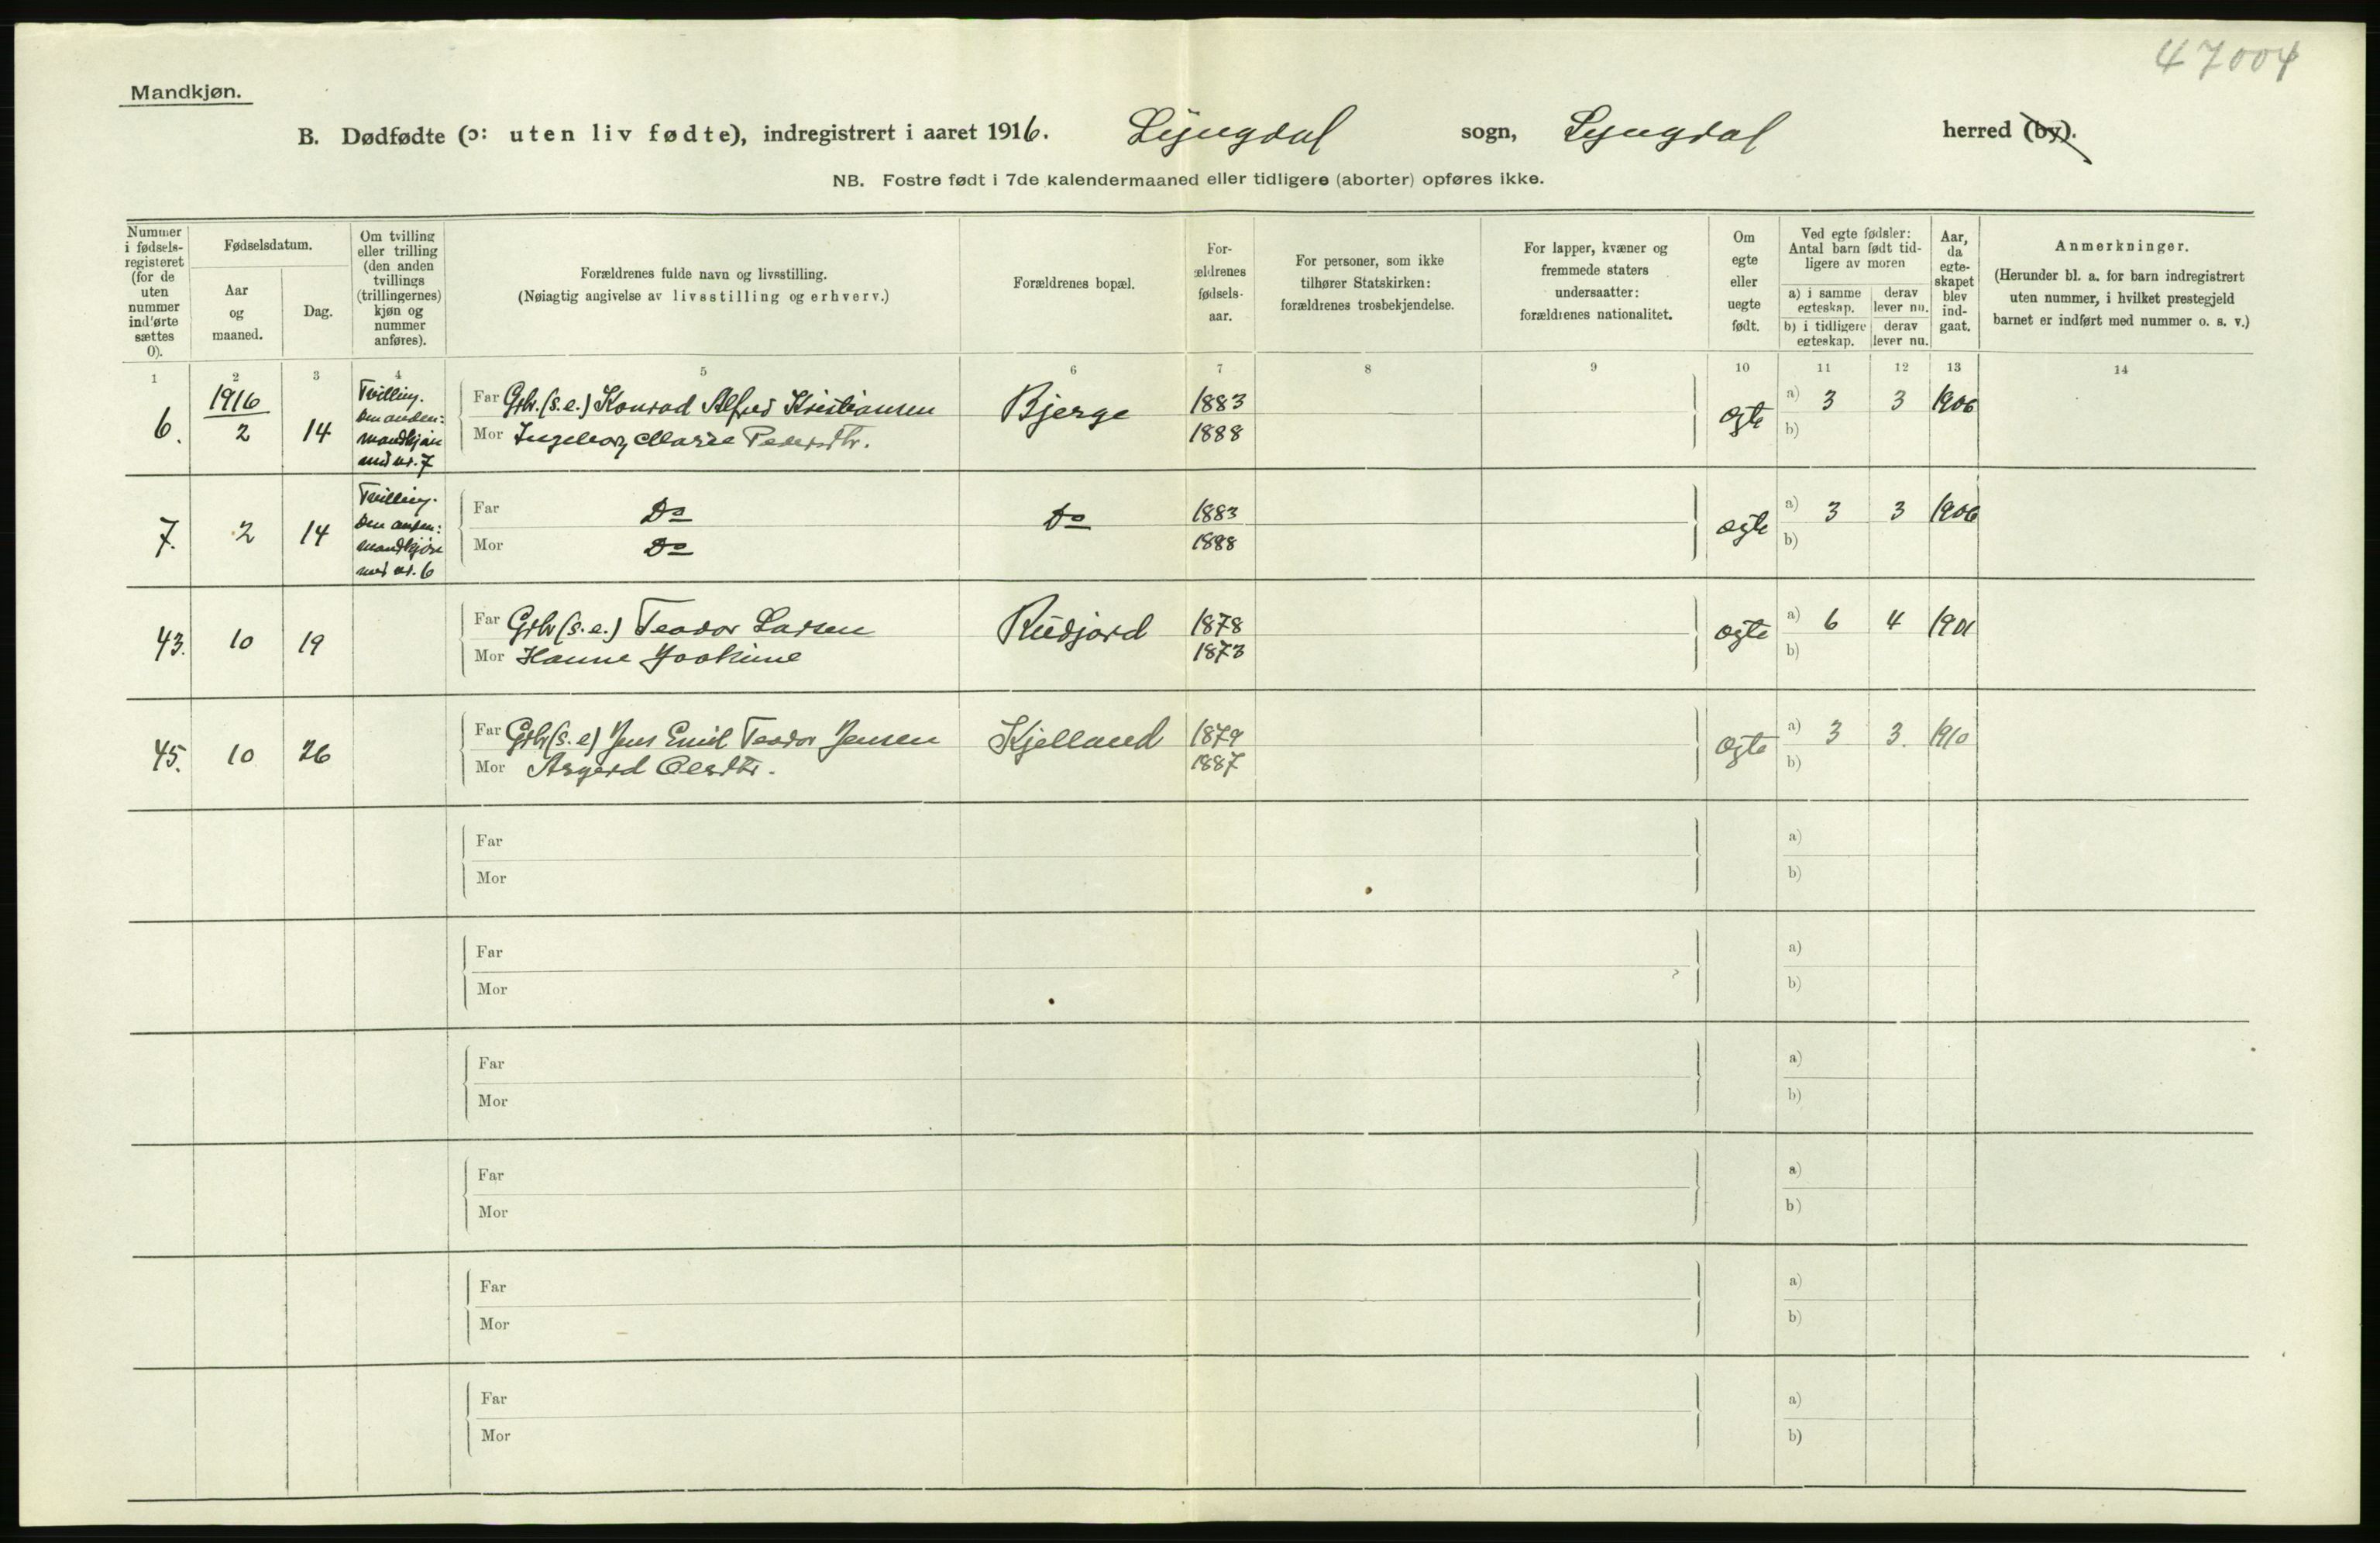 47004
Mandkjøn.
B. Dødfødte (ɔ: uten liv fødte), indregistrert i aaret 1916. Lyngdal sogn, Lyngdal herred (by).
NB. Fostre født i 7de kalendermaaned eller tidligere (aborter) opføres ikke.
Nummer i fødselsregisteret (for de uten nummer indførte sættes 0).
Fødselsdatum.
Aar og maaned.
Dag.
Om tvilling eller trilling (den anden tvillings (trillingernes) kjøn og nummer anføres).
Forældrenes fulde navn og livsstilling.
(Nøiagtig angivelse av livsstilling og erhverv.)
Forældrenes bopæl.
Forældrenes fødselsaar.
For personer, som ikke tilhører Statskirken: forældrenes trosbekjendelse.
For lapper, kvæner og fremmede staters undersaatter: forældrenes nationalitet.
Om egte eller uegte født.
Ved egte fødsler: Antal barn født tidligere av moren
a) i samme egteskap. derav lever nu.
b) i tidligere egteskap. derav lever nu.
Aar, da egteskapet blev indgaat.
Anmerkninger.
(Herunder bl. a. for barn indregistrert uten nummer, i hvilket prestegjeld barnet er indført med nummer o. s. v.)
1 2 3 4 5 6 7 8 9 10 11 12 13 14
6. 1916 2 14 Tvilling. Den anden: mandkjøn med nr. 7
Far Grbr. (s.e.) Konrad Alfred Kristiansen Bjerge 1883 egte a) 3 3 1906
Mor Ingeborg Marie Pedersdtr. 1888 b)
7. 2 14 Tvilling. Den anden: mandkjøn med nr. 6
Far Do Do 1883 egte a) 3 3 1906
Mor Do 1888 b)
43. 10 19
Far Grbr (s.e.) Teodor Larsen Rudjord 1878 egte a) 6 4 1901
Mor Hanne Joakime 1873 b)
45. 10 26
Far Grbr (s.e) Jens Emil Teodor Jensen Kjelland 1879 egte a) 3 3. 1910
Mor Asgerd Olesdtr. 1887 b)
Far a)
Mor b)
Far a)
Mor b)
Far a)
Mor b)
Far a)
Mor b)
Far a)
Mor b)
Far a)
Mor b)